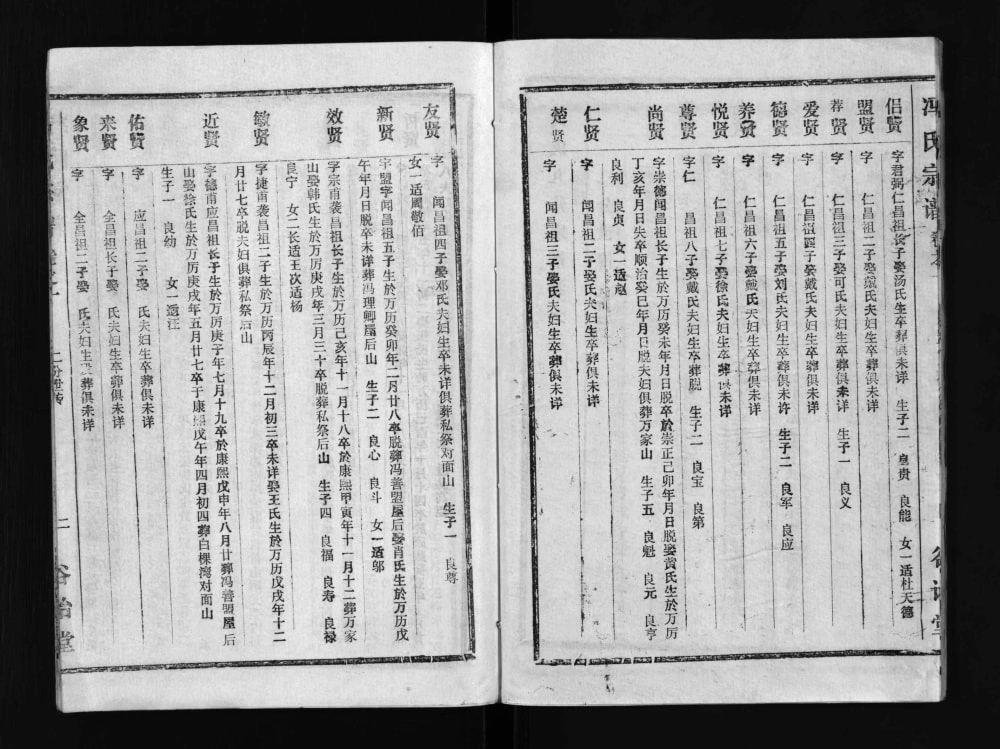 冯氏宗谱
侣贤 字君弼仁昌祖长子娶汤氏生卒葬俱未详 生子二 良贵 良能 女一适杜天德
盟贤 字 仁昌祖二子娶戴氏夫妇生卒葬俱未详
荐贤 字 仁昌祖三子娶可氏夫妇生卒葬俱未详 生子一 良义
爱贤 字 仁昌祖四子娶戴氏夫妇生卒葬俱未详
德贤 字 仁昌祖五子娶刘氏夫妇生卒葬俱未许 生子二 良军 良应
养贤 字 仁昌祖六子娶戴氏夫妇生卒葬俱未详
悦贤 字 仁昌祖七子娶徐氏夫妇生卒葬俱未详
尊贤 字仁 昌祖八子娶戴氏夫妇生卒葬脱 生子二 良宝 良第
尚贤 字崇德闻昌祖长子生於万历癸未年月日脱卒於崇正己卯年月日脱娶黄氏生於万历
丁亥年月日失卒顺治癸巳年月日脱夫妇俱葬万家山 生子五 良魁 良元 良亨
良利 良贞 女一适赵
仁贤 字 闻昌祖二子娶氏夫妇生卒葬俱未详
楚贤 字 闻昌祖三子娶氏夫妇生卒葬俱未详
友贤 字 闻昌祖四子娶邓氏夫妇生卒未详俱葬私祭对面山 生子一 良尊
女一适周敬佰
新贤 字盟字闻昌祖五子生於万历癸卯年二月廿八卒脱葬冯善盟屋后娶肖氏生於万历戊
午年月日脱卒未详葬冯理卿屋后山 生子二 良心 良斗 女一适邬
效贤 字宗甫袭昌祖长子生於万历己亥年十一月十八卒於康熙甲寅年十一月十二葬万家
山娶韩氏生於万历庚戌年三月三十卒脱葬私祭后山 生子四 良福 良寿 良禄
良宁 女二长适王次适杨
敏贤 字捷甫袭昌祖二子生於万历丙辰年十二月初三卒未详娶王氏生於万历戊戌年十二
月廿七卒脱夫妇俱葬私祭后山
近贤 字德甫应昌祖长子生於万历庚子年七月十九卒於康熙戊申年八月廿葬冯善盟屋后
山娶徐氏生於万历庚戌年五月廿七卒于康熙戊午年四月初四葬白棵湾对面山
生子一 良幼 女一适汪
佑贤 字 应昌祖二子娶 氏夫妇生卒葬俱未详
来贤 字 全昌祖长子娶 氏夫妇生卒葬俱未详
象贤 字 全昌祖二子娶 氏夫妇生 葬俱未详
二